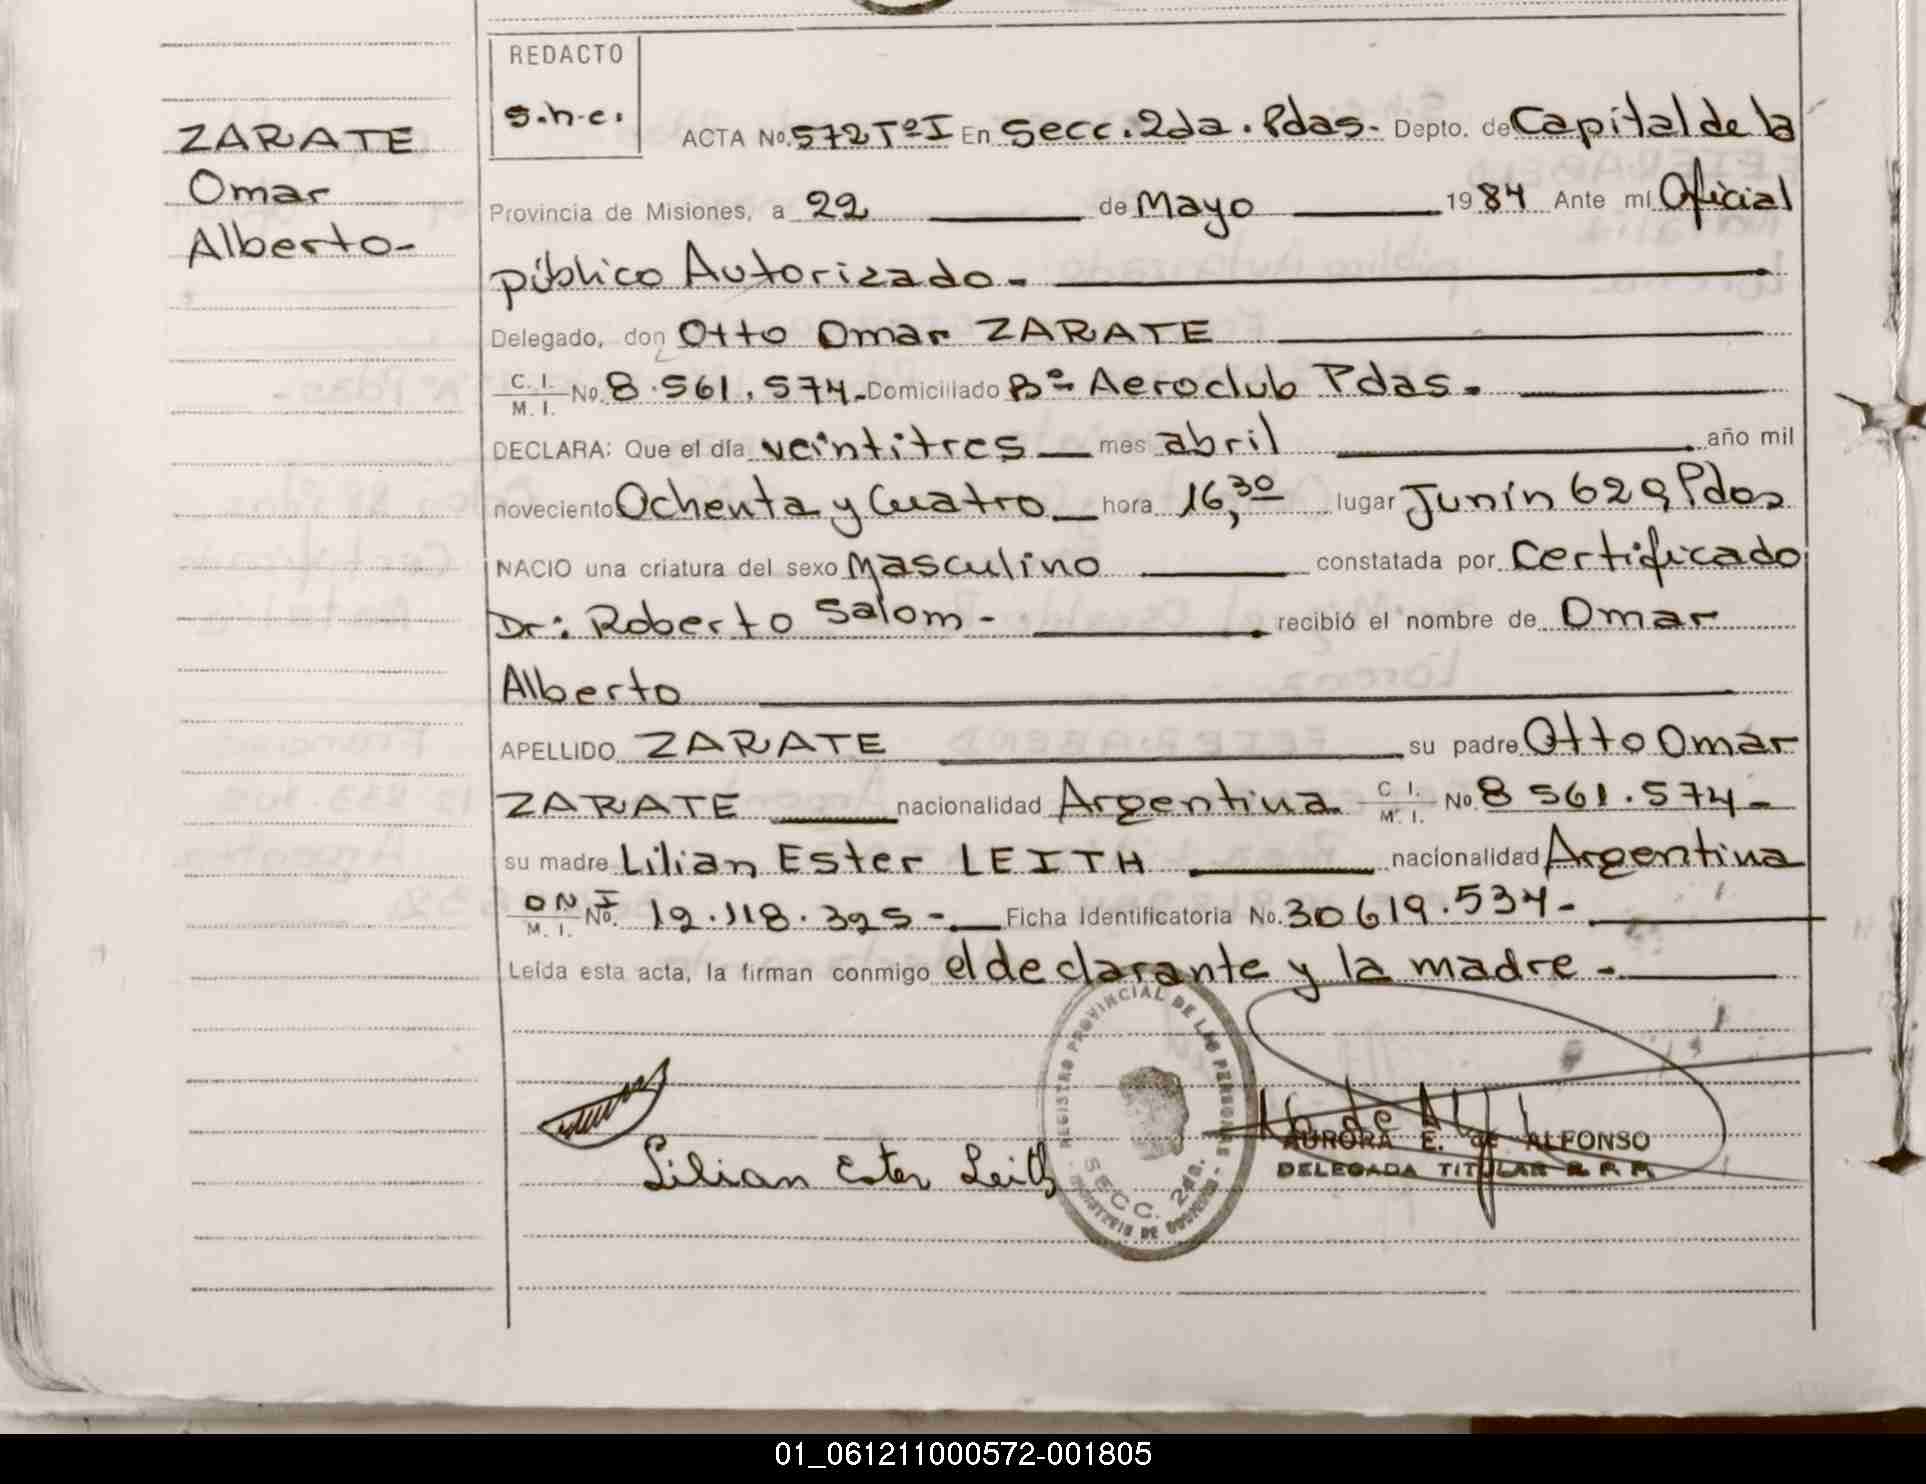 REDACTO
s.h.e.
ZARATE
Omar
Alberto-
ACTA No. 572 Tº I En Secc. 2da. Pdas- Depto. de Capital de la
Provincia de Misiones, a 22 de Mayo 1984 Ante mí Oficial
público Autorizado.
Delegado, don Otto Omar ZARATE
C. I. M. I. No. 8.561.574- Domiciliado Bº- Aeroclub Pdas.
DECLARA: Que el día veintitres mes abril año mil
noveciento Ochenta y Cuatro hora 16,30 lugar Junín 629, Pdas
NACIO una criatura del sexo Masculino constatada por Certificado
Dr: Roberto Salom- recibió el nombre de Omar
Alberto
APELLIDO ZARATE su padre Otto Omar
ZARATE nacionalidad Argentina C I. M. I. No. 8 561.574-
su madre Lilian Ester LEITH nacionalidad Argentina
DNI M. I. No. 12.118.325- Ficha Identificatoria No. 30619.534-
Leída esta acta, la firman conmigo el declarante y la madre-
REGISTRO PROVINCIAL DE LAS PERSONAS
SECC. 2da.
Lilian Ester Leith
AURORA E. de ALFONSO
DELEGADA TITULAR R. P. P.
01_061211000572-001805